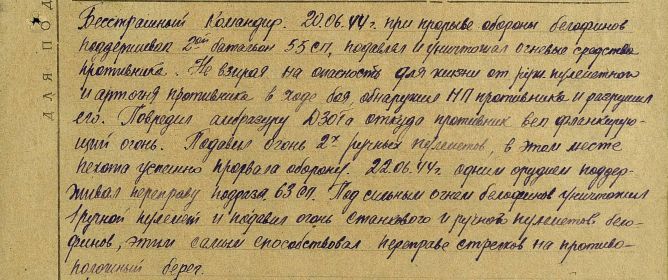 Бесстрашный Командир. 20.06.44 г. при прорыве обороны белофинов
поддерживал 2ой батальон 55 СП, подавлял и уничтожал огневые средства
противника. Не взирая на опасность для жизни от руж. пулеметного
и артогня противника в ходе боя, обнаружил НП противника и разрушил
его. Повредил амбразуру ДЗОТа откуда противник вел фланкирую-
щий огонь. Подавил огонь 2х ручных пулеметов, в этом месте
пехота успешно прорвала оборону. 22.06.44 г. одним орудием поддер-
живал переправу подразд. 63 СП. Под сильным огнем белофинов уничтожил
1 ручной пулемет и подавил огонь станкового и ручного пулеметов бело-
финов, этим самым способствовал переправе стрелков на противо-
положный берег.
ДЛЯ ПОД